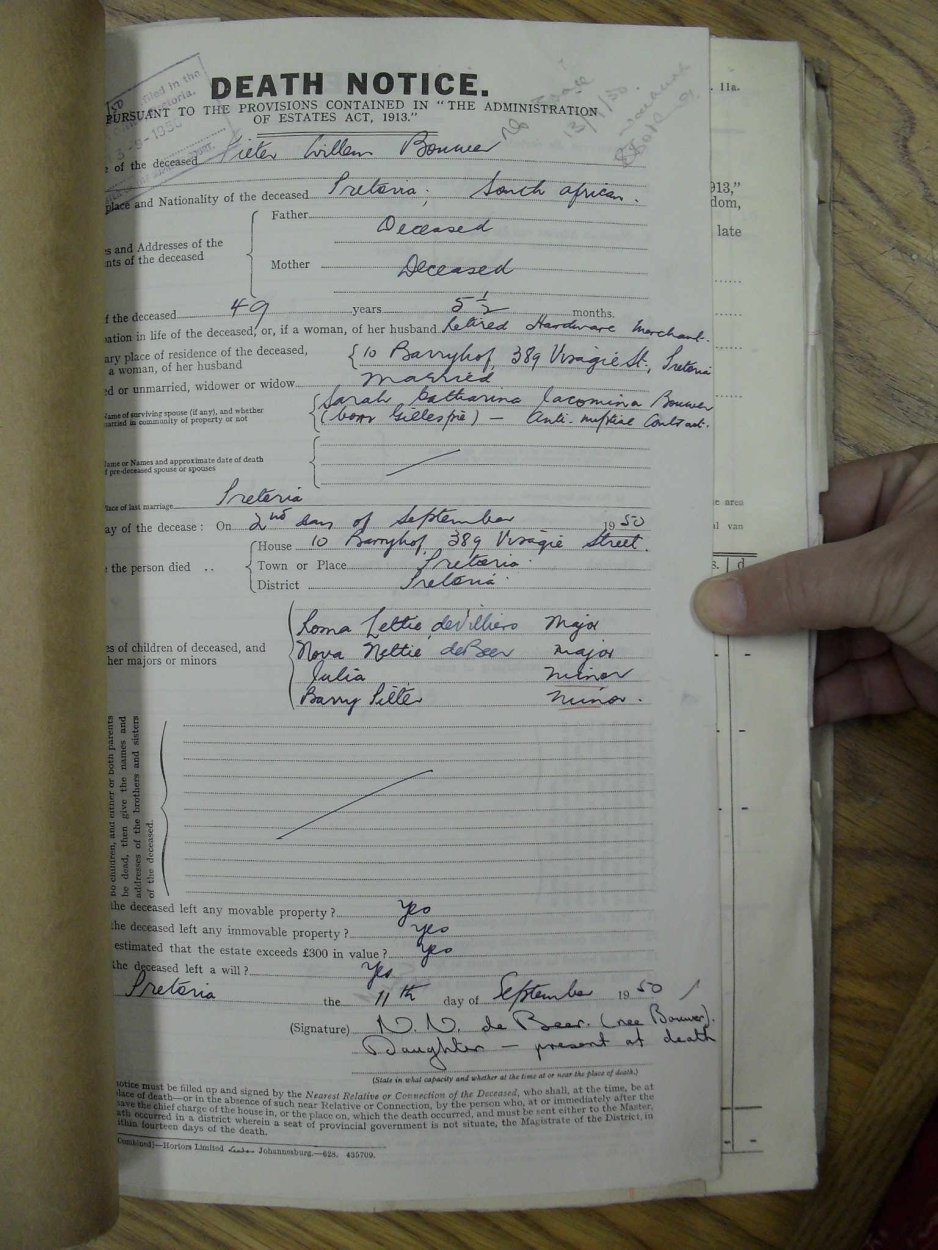 DEATH NOTICE.
PURSUANT TO THE PROVISIONS CONTAINED IN "THE ADMINISTRATION
OF ESTATES ACT, 1913."
of the deceased Pieter Willem Bouwer
place and Nationality of the deceased Pretoria, South African.
es and Addresses of the
nts of the deceased
Father Deceased
Mother Deceased
f the deceased 49 years 5½ months.
ation in life of the deceased, or, if a woman, of her husband Retired Hardware Merchant.
ary place of residence of the deceased,
a woman, of her husband
10 Barryhof, 389 Visagie St., Pretoria
ed or unmarried, widower or widow Married
Name of surviving spouse (if any), and whether
married in community of property or not
Sarah Catharina Jacomina Bouwer
(born Gillespie) — Anti-nuptial Contract.
Name or Names and approximate date of death
f pre-deceased spouse or spouses
Place of last marriage Pretoria
ay of the decease: On 2nd day of September 1950
e the person died ..
House 10 Barryhof, 389 Visagie Street.
Town or Place Pretoria.
District Pretoria.
es of children of deceased, and
her majors or minors
Roma Lettie de Villiers Major
Nova Nettie de Beer Major
Julia Minor
Barry Pieter Minor.
no children, and either or both parents
be dead, then give the names and
addresses of the brothers and sisters
of the deceased.
the deceased left any movable property? Yes
the deceased left any immovable property? Yes
estimated that the estate exceeds £300 in value? Yes
the deceased left a will? Yes
Pretoria the 11th day of September 1950
(Signature) N. N. de Beer. (nee Bouwer).
Daughter — present at death
(State in what capacity and whether at the time at or near the place of death.)
notice must be filled up and signed by the Nearest Relative or Connection of the Deceased, who shall, at the time, be at
lace of death—or in the absence of such near Relative or Connection, by the person who, at or immediately after the
ave the chief charge of the house in, or the place on, which the death occurred, and must be sent either to the Master,
ath occurred in a district wherein a seat of provincial government is not situate, the Magistrate of the District, in
ithin fourteen days of the death.
Combined)—Hortors Limited Johannesburg.—628. 435709.
11a.
913,"
dom,
late
e area
l van
s. d